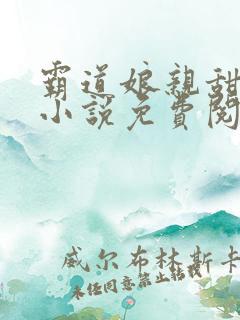 霸道娘親甜
小說免費閱
威尔布林斯卡
未经同意禁止转载